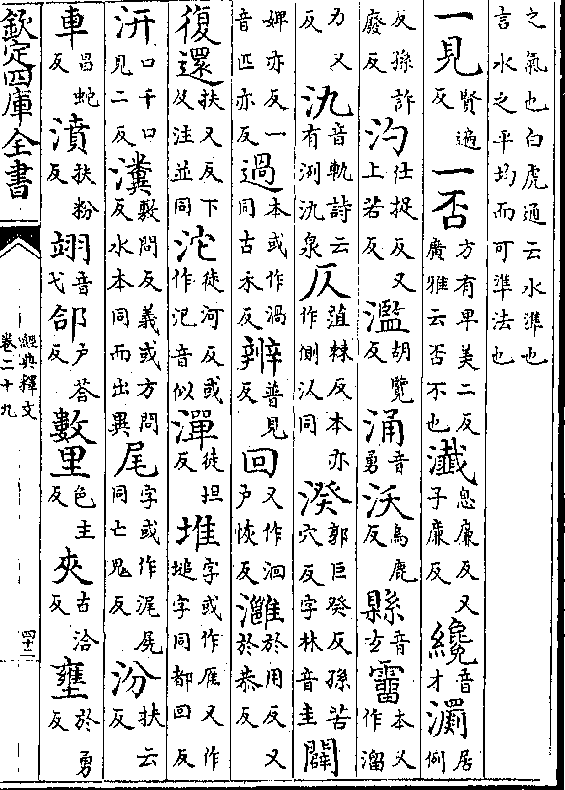 之氣也白虎通云水準也言水之平均而可準法也
一見賢遍反一否方有卑美二反廣雅云否不也瀸息廉反又子廉反纔音才瀱居例
反孫許廢反汋仕捉反又上若反濫胡覽反涌音勇沃烏鹿反縣音玄霤本又作溜
力又反氿音軌詩云有洌氿泉仄誼棘反本亦作側以同湀郭巨癸反孫苦穴反字林音圭闢
婢亦反一音匹亦反過本或作渦同古禾反辨普見反回又作洄户恢反灉於用反又於恭反
復還扶又反下及注並同沱徒河反或作汜音似潬徒坦反堆字或作雁又作塠字同都回反
汧口千口見二反瀵敷問反義或方問反水本同而出異尾字或作浘㞑同亡鬼反汾扶云反
車昌蛇反濆扶粉反翊音弋郃户荅反數里色主反夾古洽反壅於勇反
欽定四庫全書
經典釋文
卷二十九
四十二